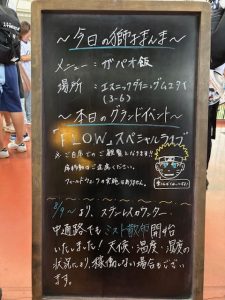 ～今日の獅子まんま～
メニュー：ガパオ飯
場所：エスニックダイニングムエタイ
(3-6)
～本日のグランドイベント～
「FLOW」スペシャルライブ
ご自席でのご観覧となります!!
席移動はご遠慮ください。
フィールドウォークの実施はありません。
8/9～より、ステンレスカウンター
中通路でもミスト散布開始
いたしました！天候・温度・湿度の
状況により、稼働しない場合もござい
ます。